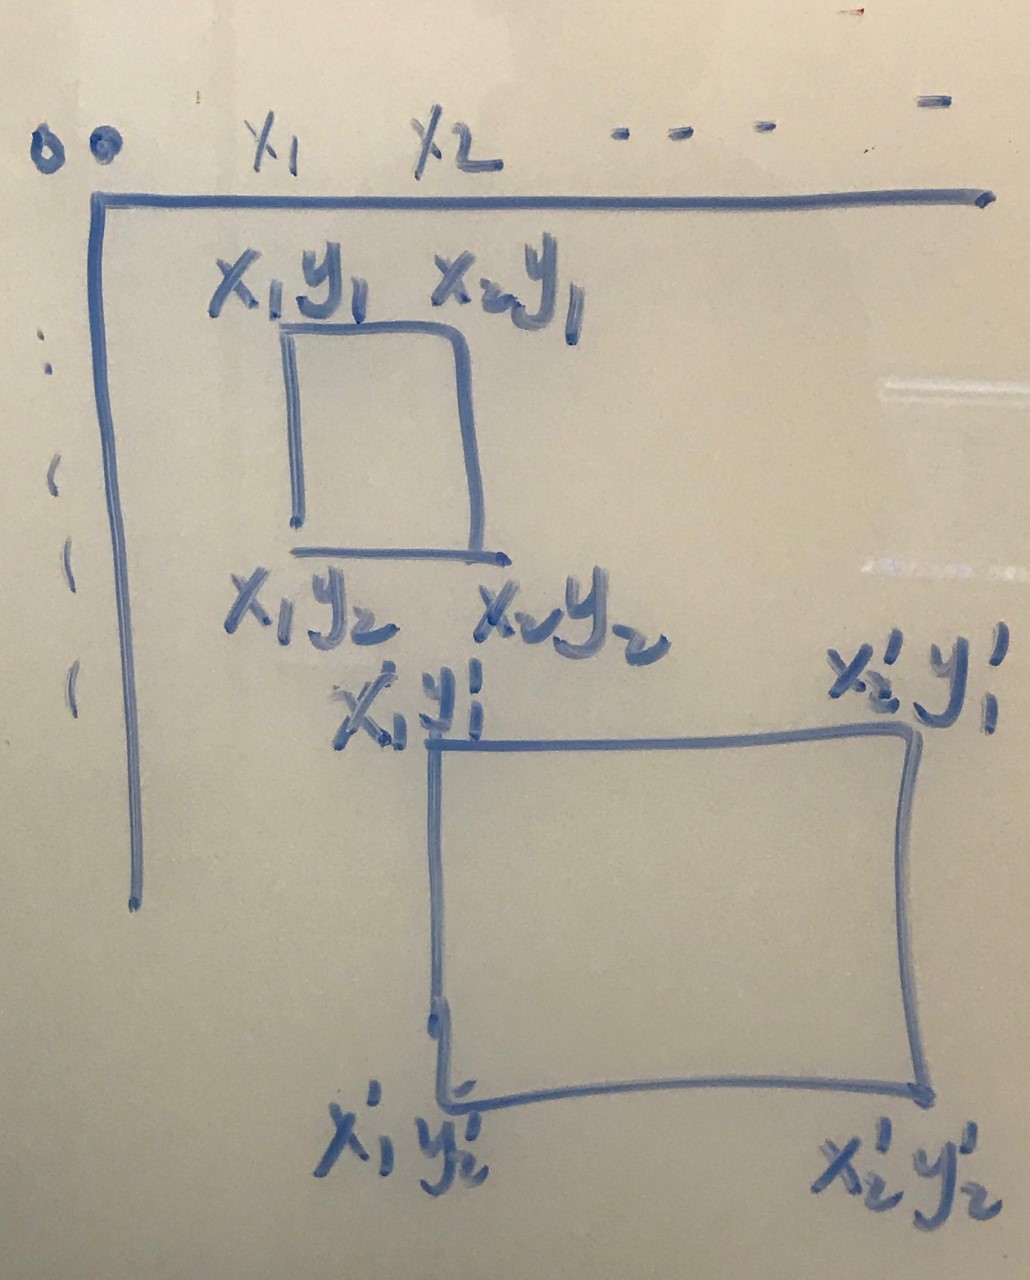 0 0 x1 x2 - - - -
x₁y₁ x₂y₁
x₁y₂ x₂y₂
x₁'y₁' x₂'y₁'
x₁'y₂' x₂'y₂'